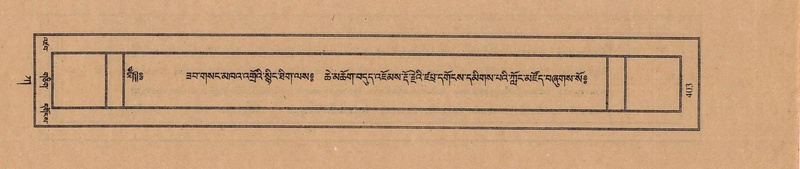 ༄༅།། ཟབ་གསང་མཁའ་འགྲོའི་སྙིང་ཐིག་ལས༔ ཆེ་མཆོག་བདུད་འཇོམས་རྡོ་རྗེའི་ཛཔྲ་དགོངས་དམིགས་པའི་ཀློང་མཛོད་བཞུགས་སོ༔
403